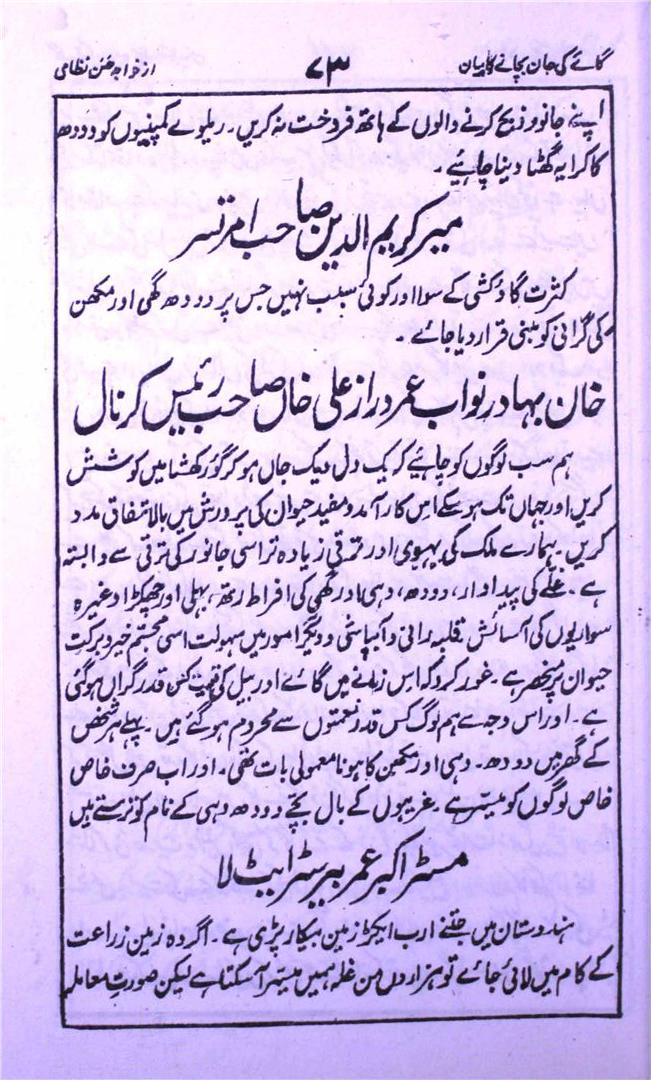 گائے کی جان بچانے کا بیان ۷۳ از خواجہ حسن نظامی
اپنے جانور ذبح کرنے والوں کے ہاتھ فروخت نہ کریں۔ ریلوے کمپنیوں کو دودھ
کا کرایہ گھٹا دینا چاہیے۔
میر کریم الدین صاحب امرتسر
کثرت گاؤکشی کے سوا اور کوئی سبب نہیں جس پر دودھ گھی اور مکھن
کی گرانی کو مبنی قرار دیا جائے۔
خان بہادر نواب عمر دراز علی خاں صاحب رئیس کرنال
ہم سب لوگوں کو چاہیے کہ یک دل و یک جاں ہو کر گؤرکھشا میں کوشش
کریں اور جہاں تک ہو سکے اس کارآمد و مفید حیوان کی پرورش میں بالاتفاق مدد
کریں۔ ہمارے ملک کی بہبودی اور ترقی زیادہ تر اسی جانور کی ترقی سے وابستہ
ہے۔ غلے کی پیداوار، دودھ، دہی اور گھی کی افراط رتھ، بہلی اور چھکڑا وغیرہ
سواریوں کی آسائش۔ قلبہ رانی و آبپاشی و دیگر امور میں سہولت اسی مجسم خیر و برکت
حیوان پر منحصر ہے۔ غور کرو کہ اس زمانے میں گائے اور بیل کی قیمت کس قدر گراں ہو گئی
ہے۔ اور اس وجہ سے ہم لوگ کس قدر نعمتوں سے محروم ہو گئے ہیں۔ پہلے ہر شخص
کے گھر میں دودھ۔ دہی اور مکھن کا ہونا معمولی بات تھی۔ اور اب صرف خاص
خاص لوگوں کو میسر ہے۔ غریبوں کے بال بچے دودھ دہی کے نام کو ترستے ہیں
مسٹر اکبر عمر بیرسٹر ایٹ لا
ہندوستان میں جتنے ارب ایکڑ زمین بیکار پڑی ہے۔ اگر وہ زمین زراعت
کے کام میں لائی جائے تو ہزاروں من غلہ ہمیں میسر آسکتا ہے لیکن صورت معاملہ